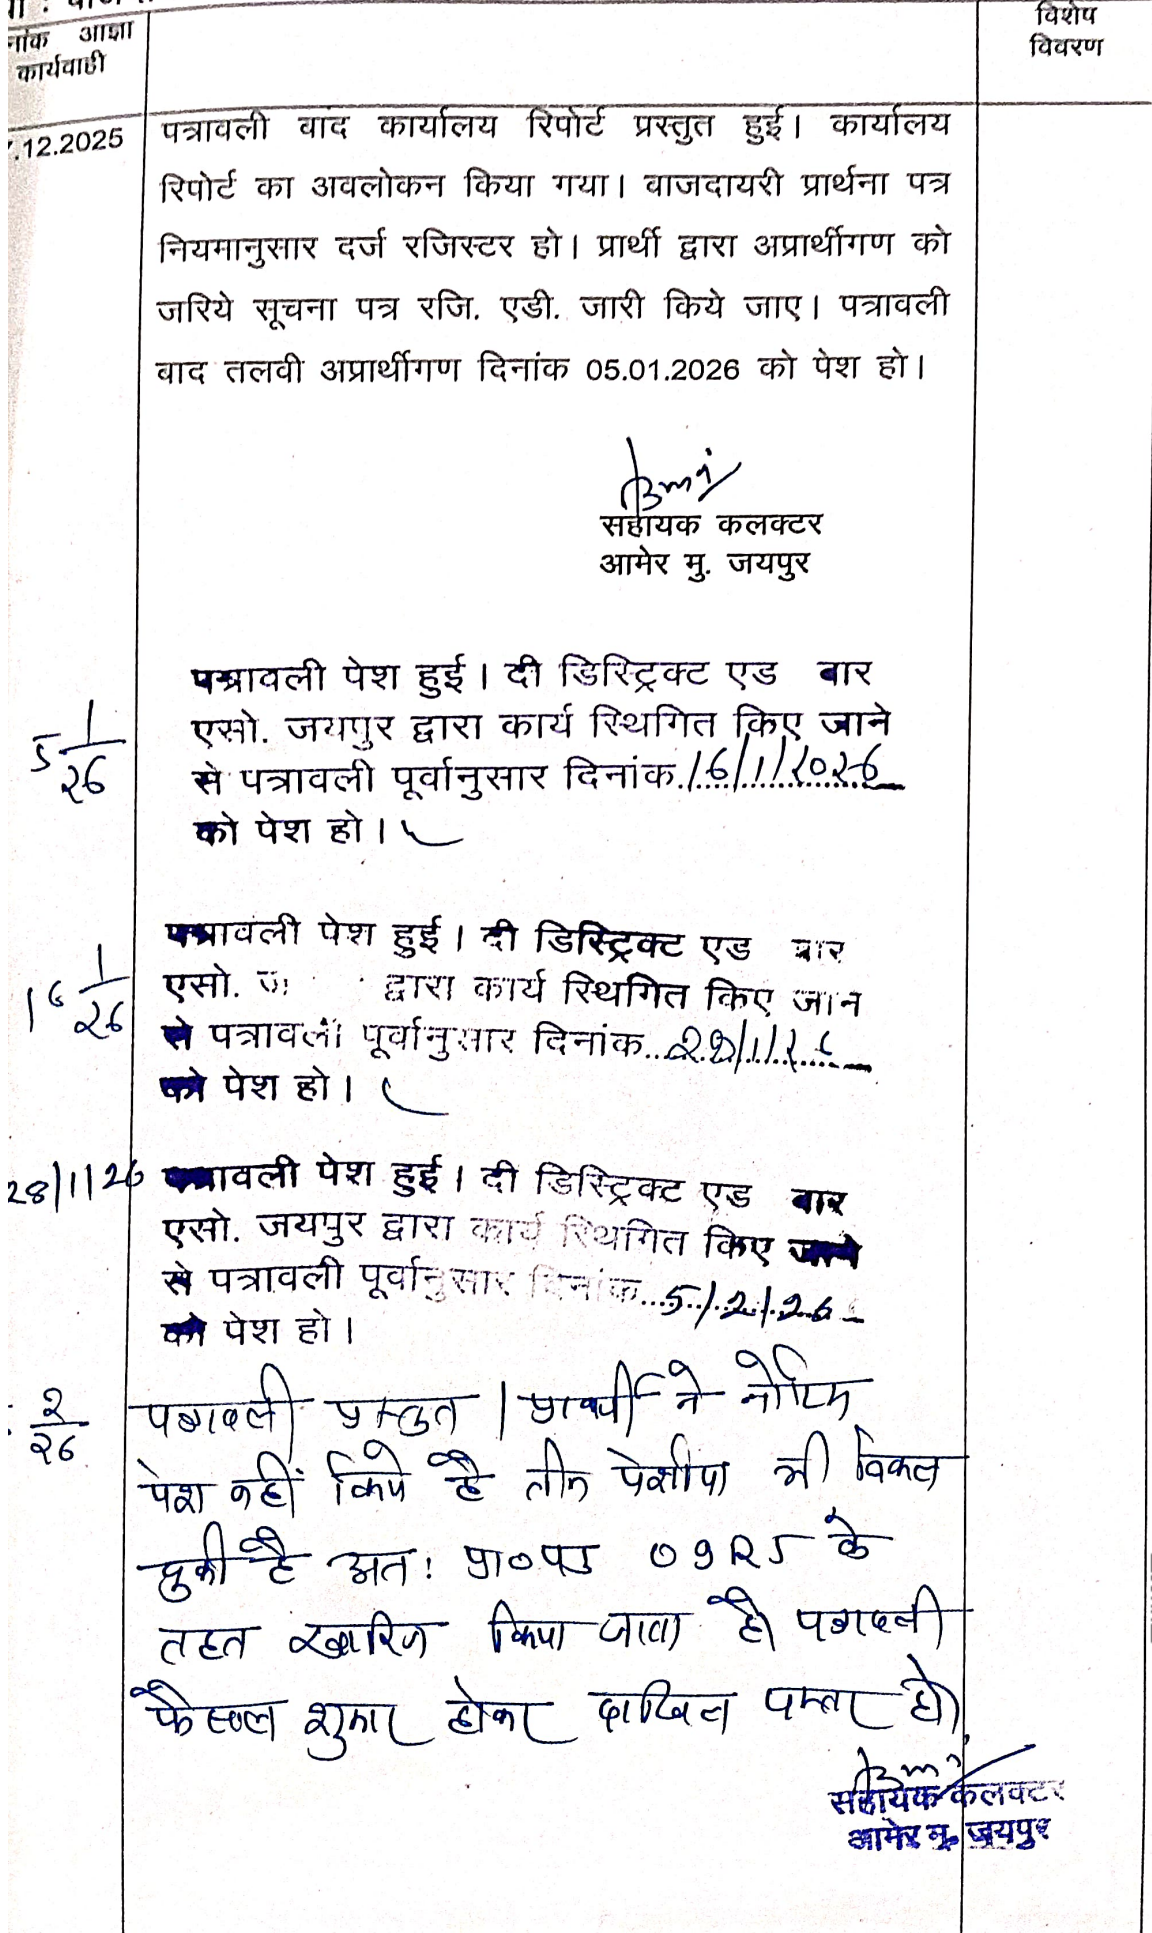 आज्ञा
कार्यवाही
विशेष
विवरण
.12.2025
पत्रावली वाद कार्यालय रिपोर्ट प्रस्तुत हुई। कार्यालय
रिपोर्ट का अवलोकन किया गया। वाजदायरी प्रार्थना पत्र
नियमानुसार दर्ज रजिस्टर हो। प्रार्थी द्वारा अप्रार्थीगण को
जरिये सूचना पत्र रजि. एडी. जारी किये जाए। पत्रावली
वाद तलवी अप्रार्थीगण दिनांक 05.01.2026 को पेश हो।
सहायक कलक्टर
आमेर मु. जयपुर
5 1/26
पत्रावली पेश हुई। दी डिस्ट्रिक्ट एड बार
एसो. जयपुर द्वारा कार्य स्थिगित किए जाने
से पत्रावली पूर्वानुसार दिनांक 16/1/2026
को पेश हो।
16 1/26
पत्रावली पेश हुई। दी डिस्ट्रिक्ट एड बार
एसो. द्वारा कार्य स्थिगित किए जान
से पत्रावली पूर्वानुसार दिनांक
को पेश हो।
28/1/26
पत्रावली पेश हुई। दी डिस्ट्रिक्ट एड बार
एसो. जयपुर द्वारा कार्य स्थिगित किए जाने
से पत्रावली पूर्वानुसार दिनांक 5/2/26
को पेश हो।
2/26
पत्रावली प्रस्तुत। प्रार्थी ने नोटिस
पेश नहीं किये है तीन पेशीया भी निकल
चुकी है अतः प्रा०पत्र 09R5 के
तहत खारिज किया जाता है। पत्रावली
फैसल शुमार होकर दाखिल दफ्तर हो।
सहायक कलक्टर
आमेर मु. जयपुर